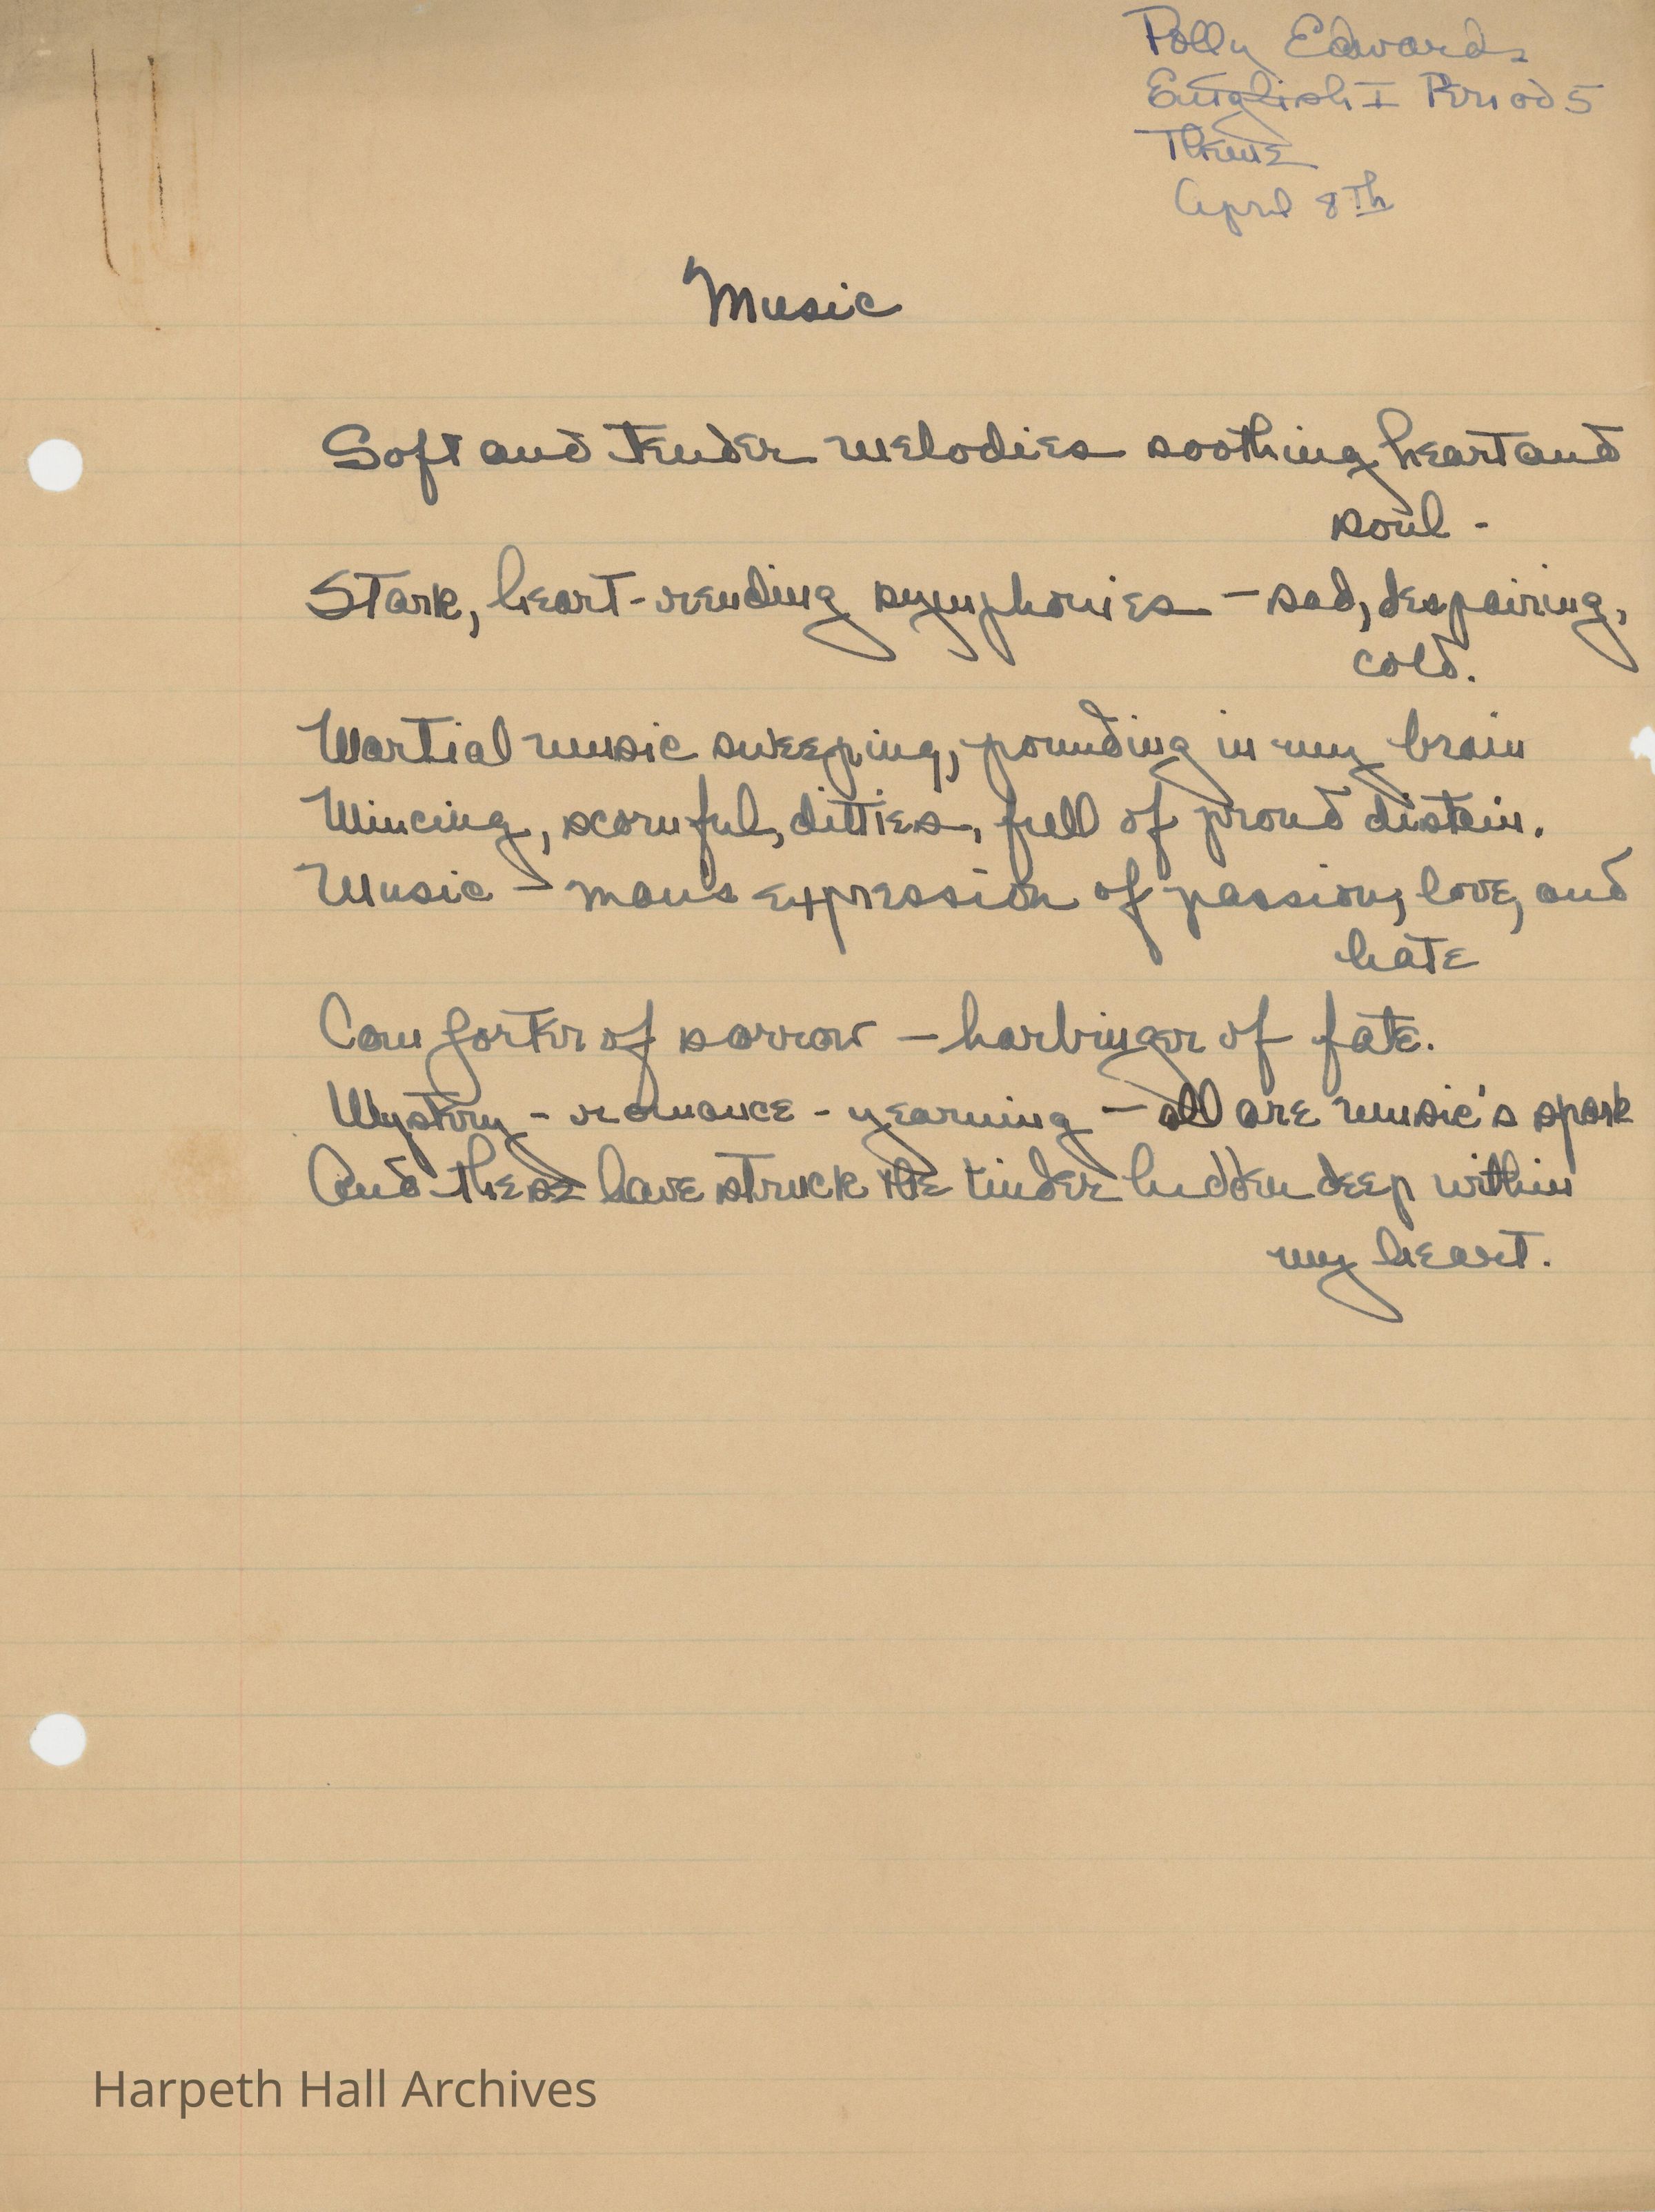 Polly Edwards
English I Period 5
Theme
April 8th
Music
Soft and tender melodies soothing heart and
soul -
Stark, heart-rending symphonies - sad, despairing,
cold.
Martial music sweeping, pounding in my brain
Mincing, scornful, ditties, full of proud distain.
Music - man's expression of passion, love, and
hate
Comforter of sorrow - harbinger of fate.
Mystery - romance - yearning - all are music's spark
And these have struck the tinder hidden deep within
my heart.
Harpeth Hall Archives